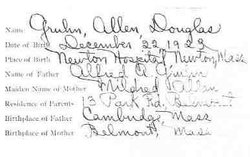 Name Gruhn, Allen Douglas
Date of Birth December 22 1923
Place of Birth Newton Hospital, Newton, Mass
Name of Father Alfred A. Gruhn
Maiden Name of Mother Mildred Allen
Residence of Parents 13 Park Rd, Belmont
Birthplace of Father Cambridge, Mass
Birthplace of Mother Belmont, Mass